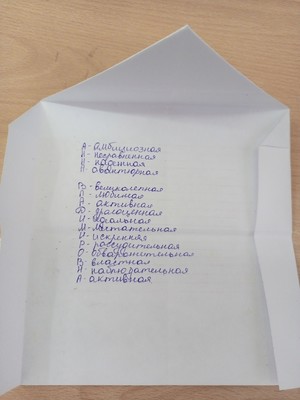 А - амбициозная
Н - несравненная
Н - надежная
А - авантюрная
В - великолепная
Л - любимая
А - активная
Д - драгоценная
И - идеальная
М - мечтательная
И - искренняя
Р - рассудительная
О - обворожительная
В - властная
Н - наблюдательная
А - активная